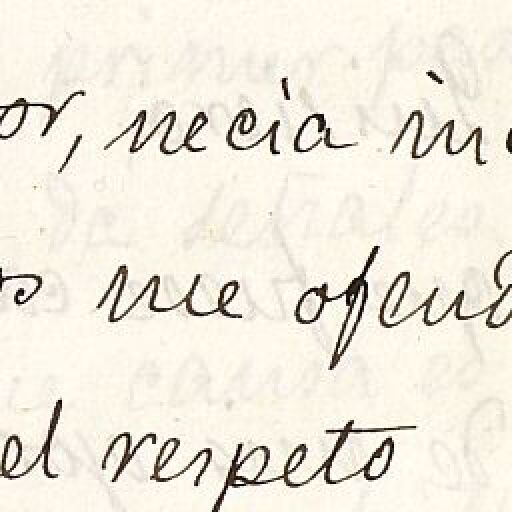 or, necia in
os me ofend
el respeto